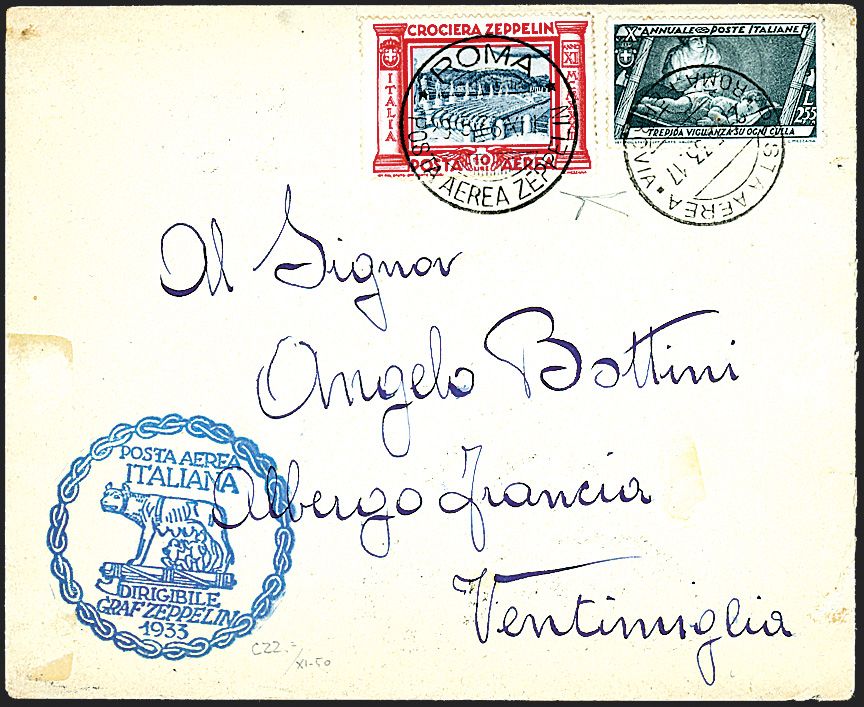 CROCIERA ZEPPELIN
ITALIA
ANNO XI
POSTA AEREA
10 LIRE
ROMA
POSTA AEREA ZEPPELIN
X° ANNUALE POSTE ITALIANE
L 2,55
TREPIDA VIGILANZA SU OGNI CULLA
ROMA
POSTA AEREA
33.17
Al Signor
Angelo Bottini
Albergo Francia
Ventimiglia
POSTA AEREA
ITALIANA
DIRIGIBILE
GRAF ZEPPELIN
1933
C22=
/XI-50